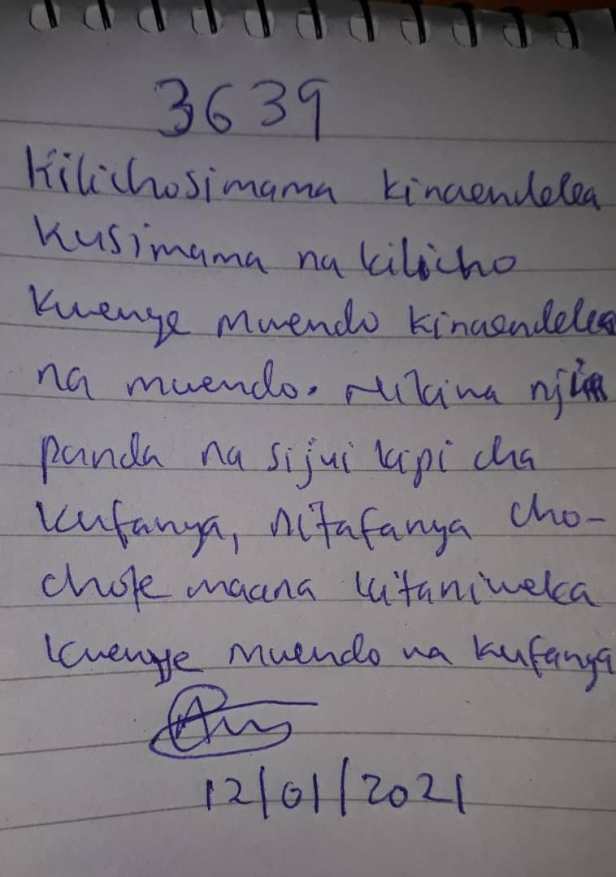 3639
Kilichosimama kinaendelea
kusimama na kilicho
kwenye mwendo kinaendelea
na mwendo. Nikiwa njia
panda na sijui kipi cha
kufanya, nitafanya cho-
chote maana kitaniweka
kwenye mwendo wa kufanya
12/01/2021